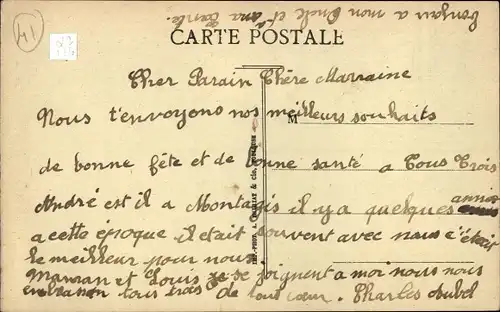 bonjour a mon Oncle et a ma Tante.
41
CARTE POSTALE
Cher Parain Chère Marraine
Nous t'envoyons nos meilleurs souhaits
M
de bonne fête et de bonne santé a Tous Trois
André est il a Montargis il y a quelques années
a cette époque il était souvent avec nous c'était
le meilleur pour nous
Maman et Louis se joignent a moi nous nous
embrasson tous trois de tout cœur. Charles